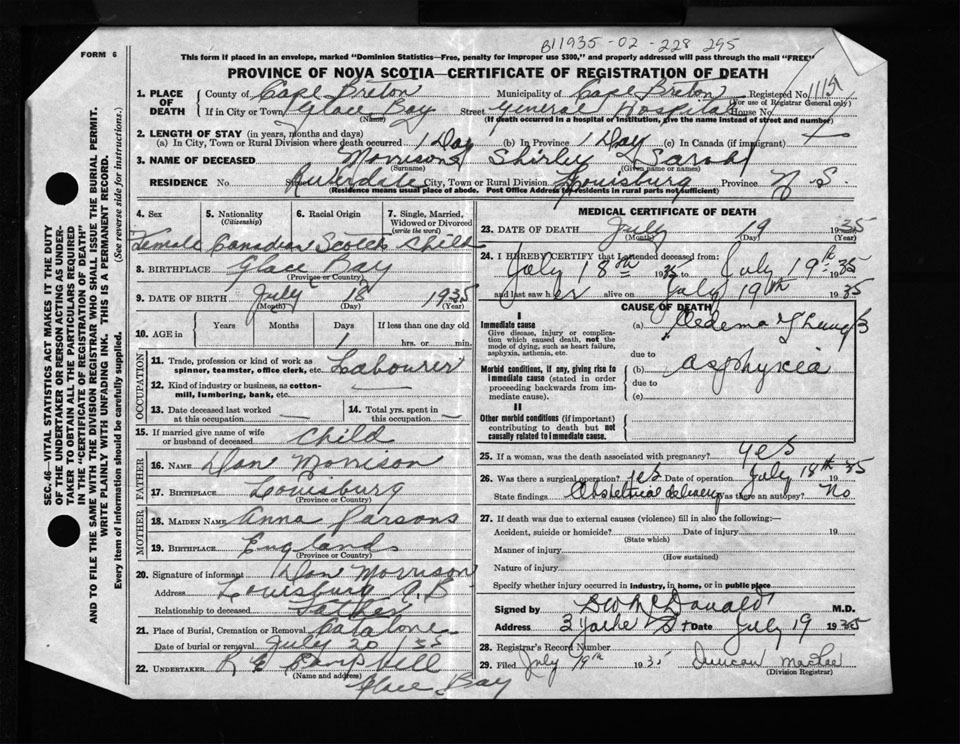 B11935-02-228 295
FORM 6
This form if placed in an envelope, marked "Dominion Statistics—Free, penalty for improper use $300," and properly addressed will pass through the mail "FREE"
PROVINCE OF NOVA SCOTIA—CERTIFICATE OF REGISTRATION OF DEATH
SEC. 46—VITAL STATISTICS ACT MAKES IT THE DUTY
OF THE UNDERTAKER OR PERSON ACTING AS UNDER-
TAKER TO OBTAIN ALL THE PARTICULARS REQUIRED
IN THE "CERTIFICATE OF REGISTRATION OF DEATH"
AND TO FILE THE SAME WITH THE DIVISION REGISTRAR WHO SHALL ISSUE THE BURIAL PERMIT.
WRITE PLAINLY WITH UNFADING INK. THIS IS A PERMANENT RECORD.
Every item of information should be carefully supplied. (See reverse side for instructions.)
1. PLACE OF DEATH County of Cape Breton Municipality of Cape Breton Registered No.
(For use of Registrar General only)
If in City or Town Glace Bay Street General Hospital House No.
(Name) (If death occurred in a hospital or institution, give the name instead of street and number)
2. LENGTH OF STAY (in years, months and days)
(a) In City, Town or Rural Division where death occurred 1 Day (b) In Province 1 Day (c) In Canada (if immigrant)
3. NAME OF DECEASED Morrison Shirley Sarah
(Surname) (Given name or names)
RESIDENCE No. Street Riverdale City, Town or Rural Division Louisburg Province N S
(Residence means usual place of abode. Post Office Address for residents in rural parts not sufficient)
4. Sex 5. Nationality (Citizenship) 6. Racial Origin 7. Single, Married, Widowed or Divorced (write the word)
Female Canadian Scotch Child
8. BIRTHPLACE Glace Bay
(Province or Country)
9. DATE OF BIRTH July 18 1935
(Month) (Day) (Year)
10. AGE in Years Months Days If less than one day old
1 hrs. or min.
OCCUPATION
11. Trade, profession or kind of work as spinner, teamster, office clerk, etc. Labourer
12. Kind of industry or business, as cotton-mill, lumbering, bank, etc. —
13. Date deceased last worked at this occupation — 14. Total yrs. spent in this occupation —
15. If married give name of wife or husband of deceased Child
FATHER
16. NAME Dan Morrison
17. BIRTHPLACE Louisburg
(Province or Country)
MOTHER
18. MAIDEN NAME Anna Parsons
19. BIRTHPLACE England
(Province or Country)
20. Signature of informant Dan Morrison
Address Louisburg C.B
Relationship to deceased Father
21. Place of Burial, Cremation or Removal Catalone
Date of burial or removal July 20 1935
22. UNDERTAKER
(Name and address)
Glace Bay
MEDICAL CERTIFICATE OF DEATH
23. DATE OF DEATH July 19 1935
(Month) (Day) (Year)
24. I HEREBY CERTIFY that I attended deceased from:
July 18th 1935 to July 19th 1935
and last saw her alive on July 19th 1935
CAUSE OF DEATH
I
Immediate cause (a) Oedema of Lungs
Give disease, injury or complication which caused death, not the mode of dying, such as heart failure, asphyxia, asthenia, etc.
due to
Morbid conditions, if any, giving rise to immediate cause (stated in order proceeding backwards from immediate cause).
(b) asphyxia
due to
(c)
II
Other morbid conditions (if important) contributing to death but not causally related to immediate cause.
25. If a woman, was the death associated with pregnancy? yes
26. Was there a surgical operation? yes Date of operation July 18th 1935
State findings Obstetrical delivery Was there an autopsy? No
27. If death was due to external causes (violence) fill in also the following:—
Accident, suicide or homicide? Date of injury 19
(State which)
Manner of injury
(How sustained)
Nature of injury
Specify whether injury occurred in industry, in home, or in public place
Signed by McDonald M.D.
Address 3 Yorke St Date July 19 1935
28. Registrar's Record Number
29. Filed July 19th 1935 Duncan MacRae
(Division Registrar)